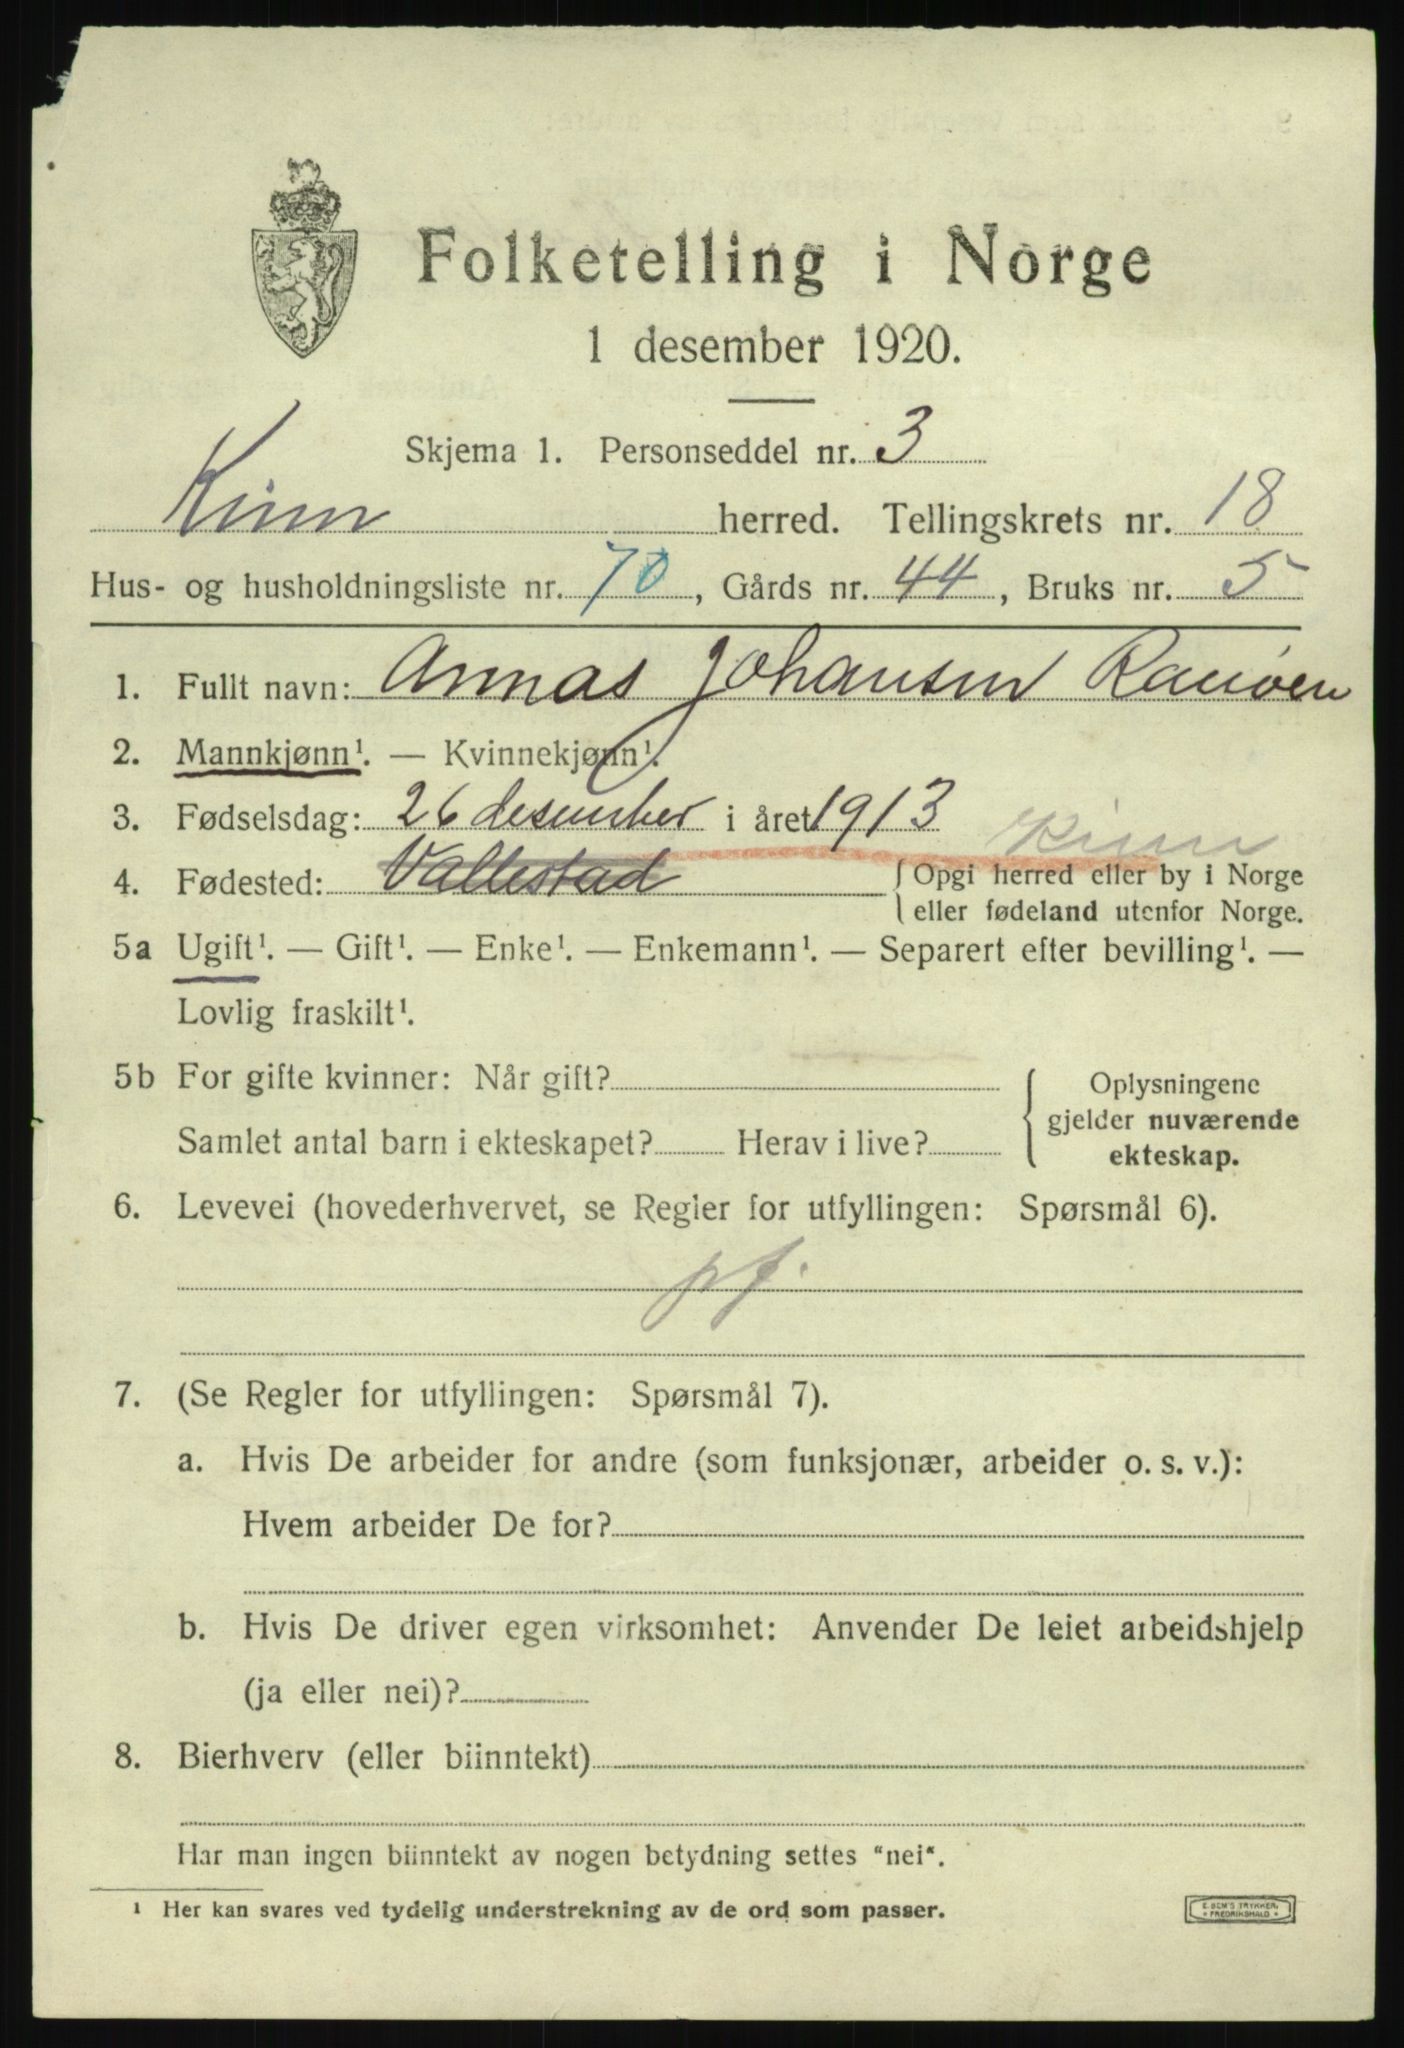 Folketelling i Norge
1 desember 1920.
Skjema 1. Personseddel nr. 3
Kinn herred. Tellingskrets nr. 18
Hus- og husholdningsliste nr. 70, Gårds nr. 44, Bruks nr. 5
1. Fullt navn: Annas Johansen Ranøen
2. Mannkjønn¹. — Kvinnekjønn¹.
3. Fødselsdag: 26 desember i året 1913
Kinn
4. Fødested: Vallestad { Opgi herred eller by i Norge
eller fødeland utenfor Norge.
5a Ugift¹. — Gift¹. — Enke¹. — Enkemann¹. — Separert efter bevilling¹. —
Lovlig fraskilt¹.
5b For gifte kvinner: Når gift?
Samlet antal barn i ekteskapet? Herav i live?
{ Oplysningene
gjelder nuværende
ekteskap.
6. Levevei (hovederhvervet, se Regler for utfyllingen: Spørsmål 6).
pf.
7. (Se Regler for utfyllingen: Spørsmål 7).
a. Hvis De arbeider for andre (som funksjonær, arbeider o. s. v.):
Hvem arbeider De for?
b. Hvis De driver egen virksomhet: Anvender De leiet arbeidshjelp
(ja eller nei)?
8. Bierhverv (eller biinntekt)
Har man ingen biinntekt av nogen betydning settes "nei".
¹ Her kan svares ved tydelig understrekning av de ord som passer.
E. SEM'S TRYKKER.
FREDRIKSHALD